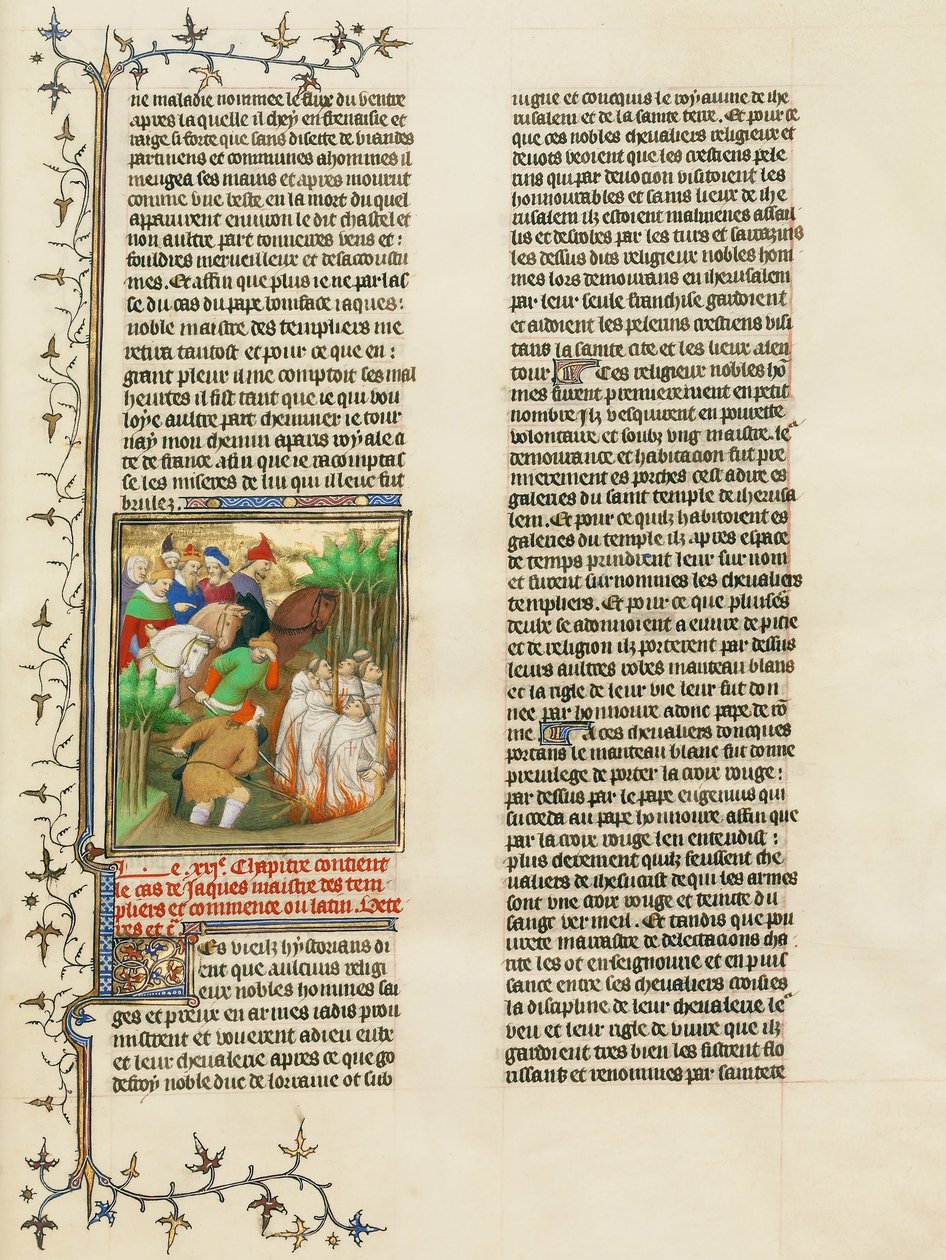 ne maladie nommee le flux du ventre
apres laquelle il chey en frenaisie et
raige si forte que sans disette de viandes
partinens et communes a hommes il
menga ses mains et apres mourut
comme une beste. en la mort du quel
apparurent environ le dit chastel et
non aultre part tonnerres vens et :
fouldres merveilleux et desaccoustu
mes. Et affin que plus ie ne parlas
se du cas du pape boniface iaques :
noble maistre des templiers me
retira tantost et pour ce que en :
grant pleur il me comptoit ses mal
heurtes il fist tant que ie qui vou
loye aultre part cheminer ie tour
nay mon chemin a paris royale ci
te de france afin que ie racomptas
se les miseres de lui qui illeuc fut
brulez.
Le .xxj.e Chapitre contient
le cas de Jaques maistre des tem
pliers et commence ou latin. Vete
res et c̃
Les vieilz hystorians di
ent que aulcuns religi
eux nobles hommes sai
ges et preux en armes iadis prou
mistrent et vouerent a dieu eulx
et leur chevalerie apres ce que go
deffroy noble duc de lorraine ot sub
iugue et conquis le royaume de ihe
rusalem et de la sainte terre. Et pour ce
que ces nobles chevaliers religieux et
devots veoient que les crestiens pele
rins qui par devocion visitoient les
honnourables et sains lieux de ihe
rusalem ilz estoient malmenes assail
lis et desrobes par les turs et sarrazins
les dessus dits religieux nobles hom
mes lors demourans en iherusalem
par leur seule franchise gardoient
et aidoient les pelerins crestiens visi
tans la sainte cite et les lieux alen
tour. Ces religieux nobles hõ
mes furent premierement en petit
nombre Jlz vesquirent en povrete
volontaire et soubz ung maistre. le
demourance et habitacion fut pre
mierement es porches cest a dire es
galeries du saint temple de iherusa
lem. Et pour ce quilz habitoient es
galeries du temple ilz apres espace
de temps prindrent leur sur nom
et furent surnommes les chevaliers
templiers. Et pour ce que plusēs
deulx se adonnoient a euvre de pitie
et de religion ilz porterent par dessus
leurs aultres robes manteau blans
et la rigle de leur vie leur fut don
nee par honnoure adonc pape de rõ
me. A ces chevaliers doncques
portans le manteau blanc fut donne
previlege de porter la croix rouge :
par dessus par le pape eugenius qui
succeda au pape honnoure affin que
par la croix rouge len entendist :
plus clerement quilz feussent che
valiers de ihesucrist de qui les armes
sont une croix rouge et teinte du
sanct vermeil. Et tandis que pou
urete marrastre de delectacions cha
rite les ot enseignourie et en puis
sance entre ses chevaliers croisies
la discipline de leur chevalerie le
veu et leur rigle de vivre que ilz
gardoient tres bien les fistrent flo
rissans et renommes par saintete